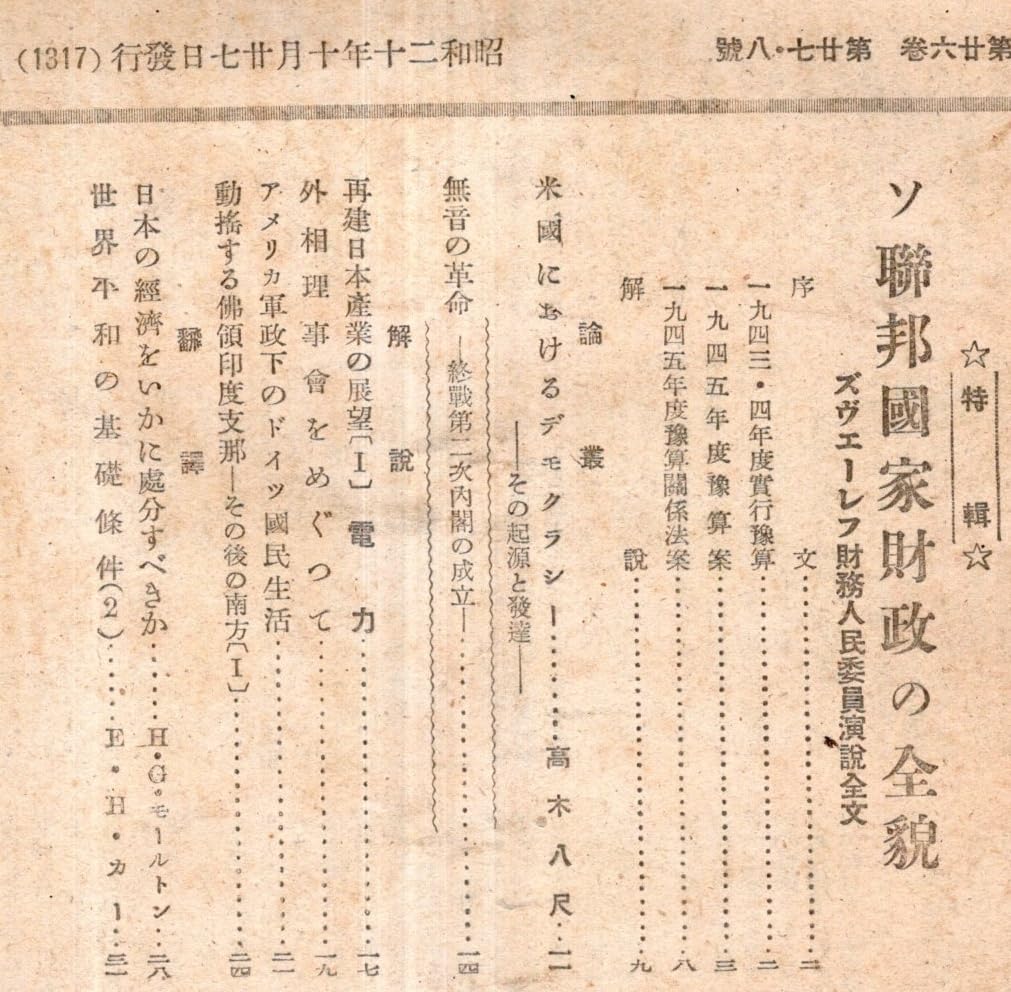 第廿六卷 第廿七・八號
昭和二十年十月廿七日發行 (1317)
☆特輯☆
ソ聯邦國家財政の全貌
ズヴエーレフ財務人民委員演說全文
序文……二
一九四三・四年度實行豫算……二
一九四五年度豫算案……三
一九四五年度豫算關係法案……八
解說……九
論叢
米國におけるデモクラシー……高木八尺…一一
――その起源と發達――
無音の革命 ―終戰第二次內閣の成立―……一四
解說
再建日本產業の展望〔I〕電力……一七
外相理事會をめぐつて……一九
アメリカ軍政下のドイツ國民生活……二一
動搖する佛領印度支那―その後の南方〔I〕……二四
飜譯
日本の經濟をいかに處分すべきか……H・G・モールトン…二八
世界平和の基礎條件(2)……E・H・カー…三一